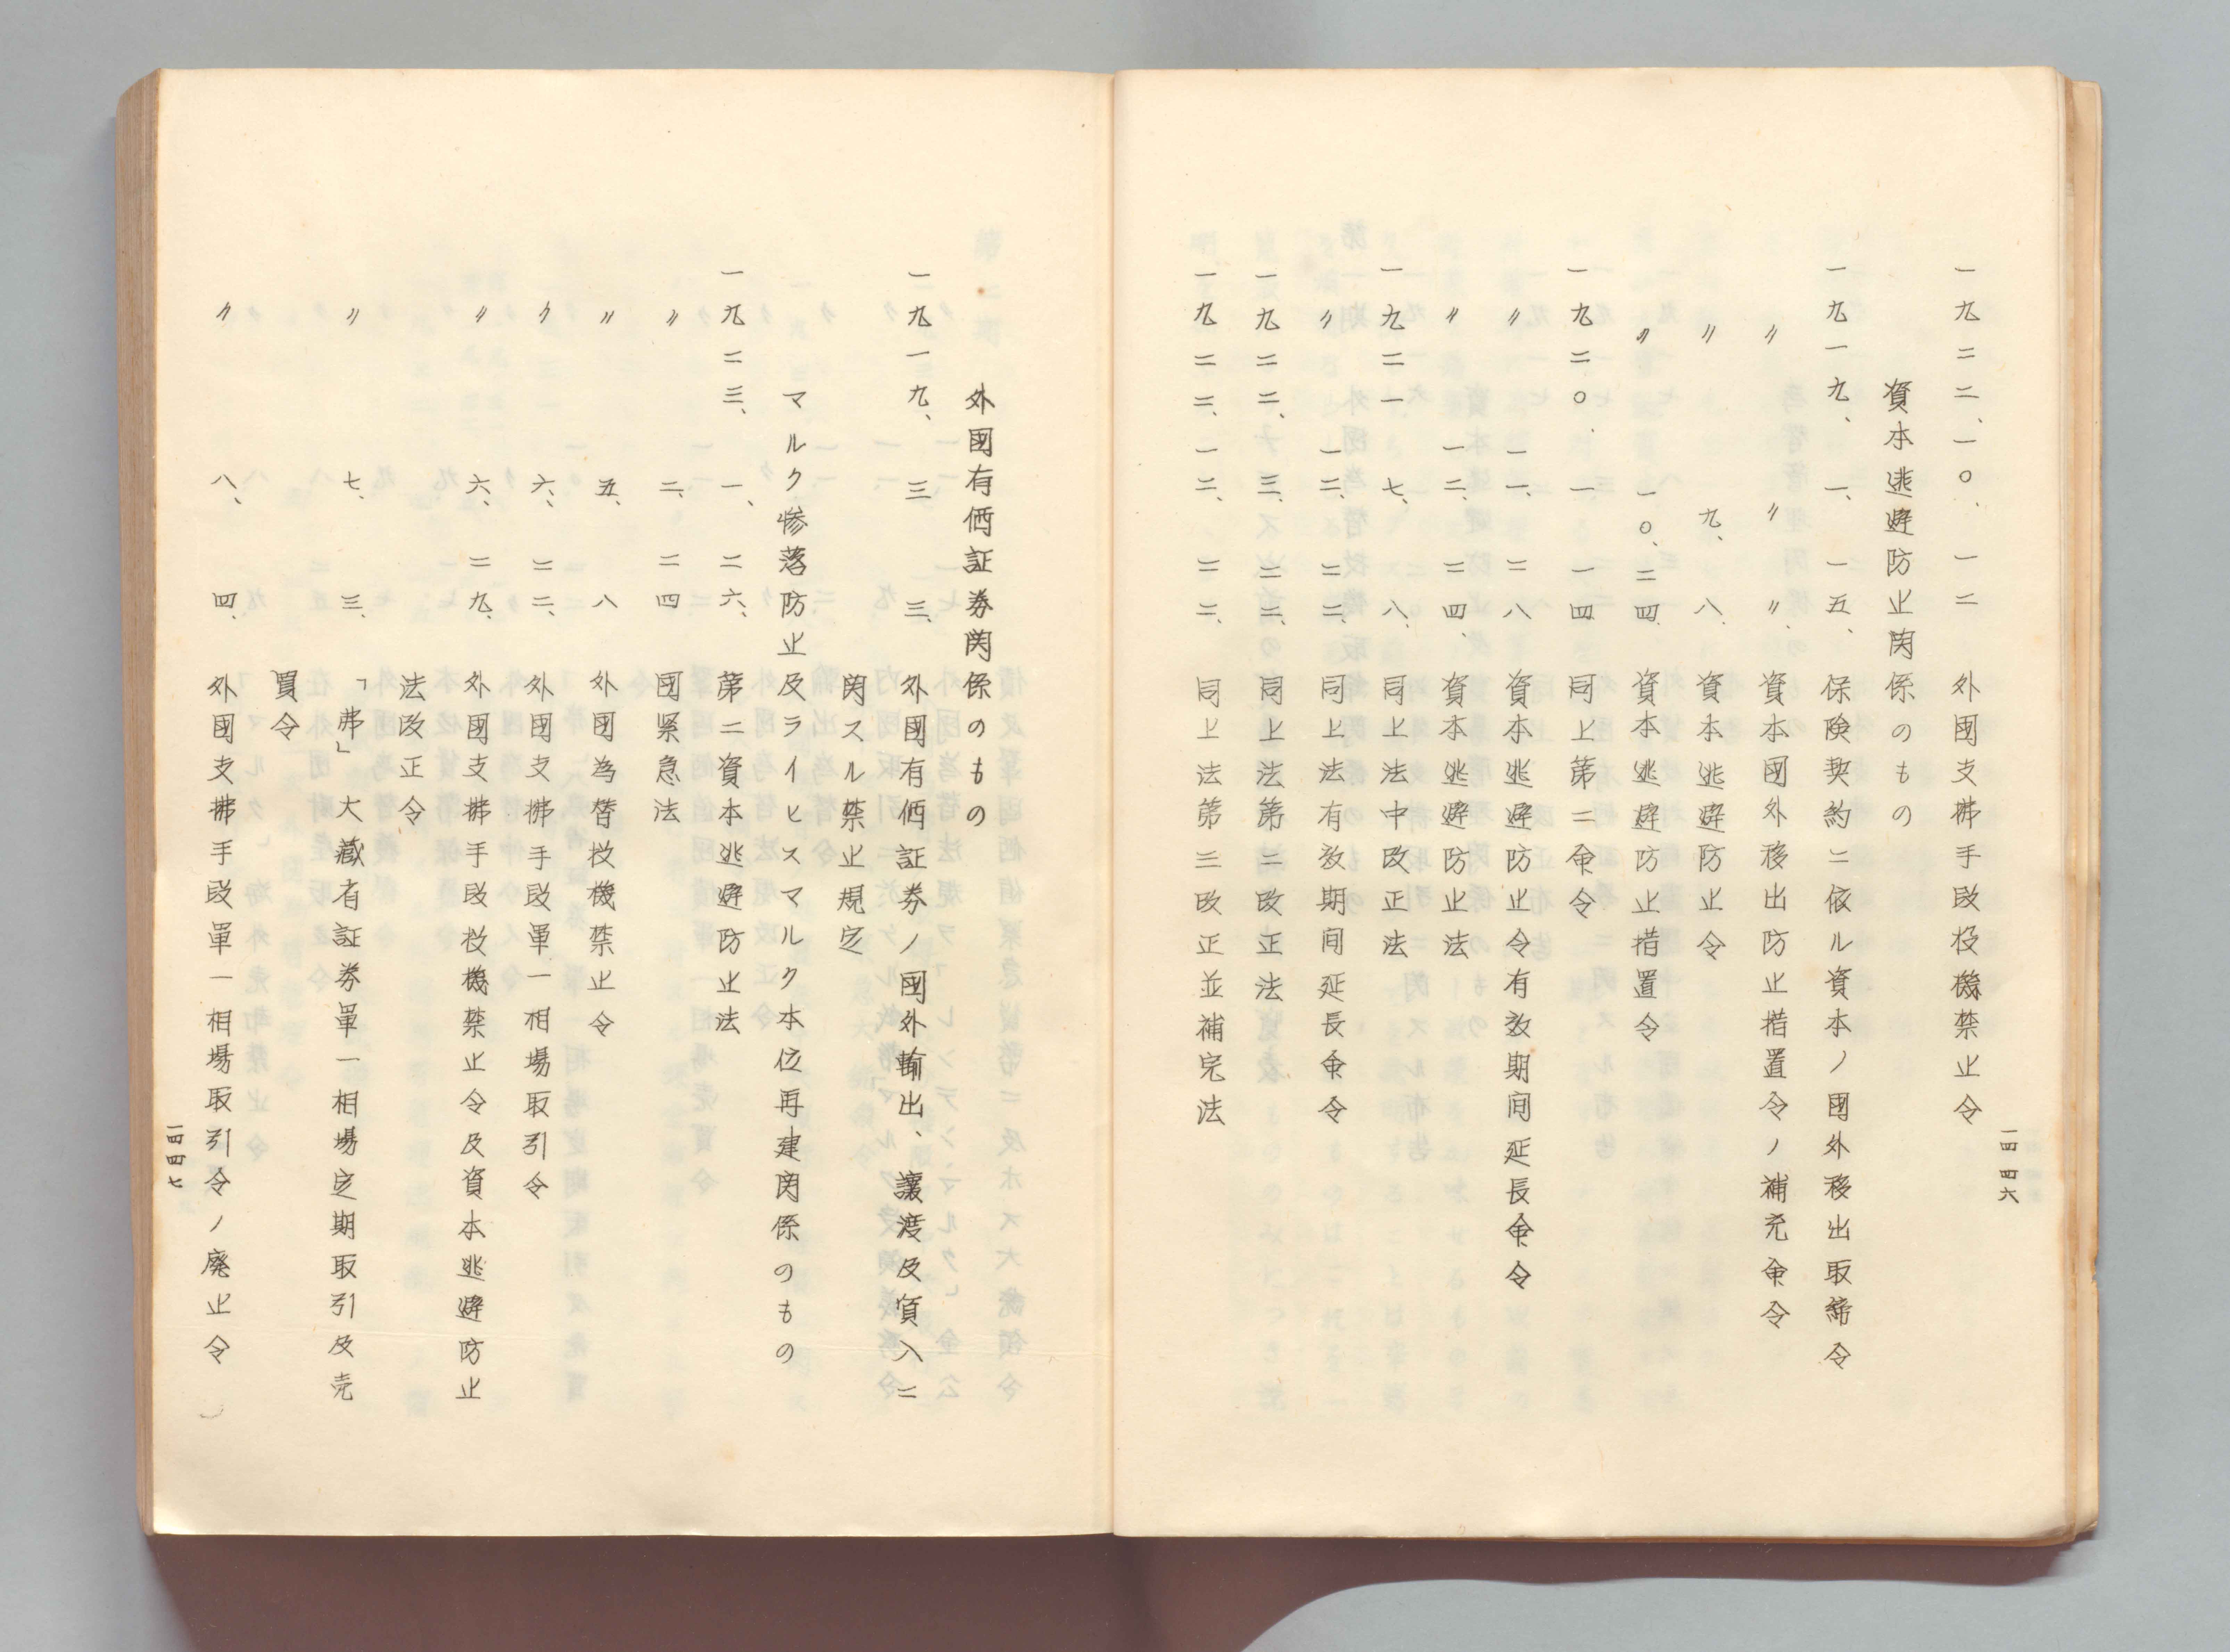 一四四六
一九二二、一〇、一二　外國支拂手段投機禁止令
資本逃避防止関係のもの
一九一九、一、一五、保険契約ニ依ル資本ノ國外移出取締令
〃　〃　〃、資本國外移出防止措置令ノ補充命令
〃　九、八、資本逃避防止令
〃　一〇、二四　資本逃避防止措置令
一九二〇、一、一四　同上第二命令
〃　一一、二八　資本逃避防止令有效期间延長命令
〃　一二、二四、資本逃避防止法
一九二一　七、八、同上法中改正法
〃　一二、二二、同上法有效期间延長命令
一九二二、三、二二、同上法第二改正法
一九二二、一二、二二、同上法第三改正並補完法
外國有価証券関係のもの
一九一九、三　三、外國有価証券ノ國外輸出、讓渡及質入ニ
関スル禁止規定
マルク惨落防止及ライヒスマルク本位再建関係のもの
一九二三、一、二六、第二資本逃避防止法
〃　二、二四　國緊急法
〃　五、八　外國為替投機禁止令
〃　六、二二、外國支拂手段單一相場取引令
〃　六、二九、外國支拂手段投機禁止令及資本逃避防止
法改正令
〃　七、三、「弗」大藏省証券單一相場定期取引及売
買令
〃　八、四、外國支拂手段單一相場取引令ノ廢止令
一四四七